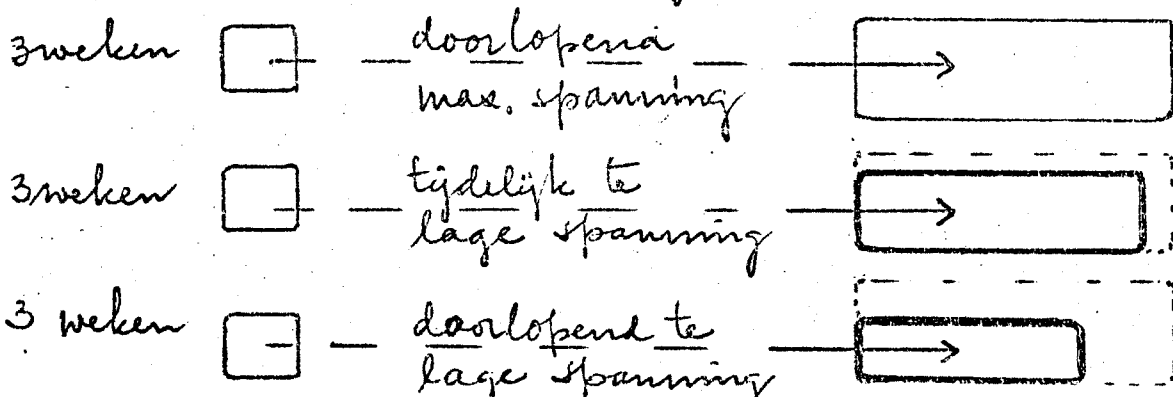 3 weken
doorlopend
max. spanning
3 weken
tijdelijk te
lage spanning
3 weken
doorlopend te
lage spanning